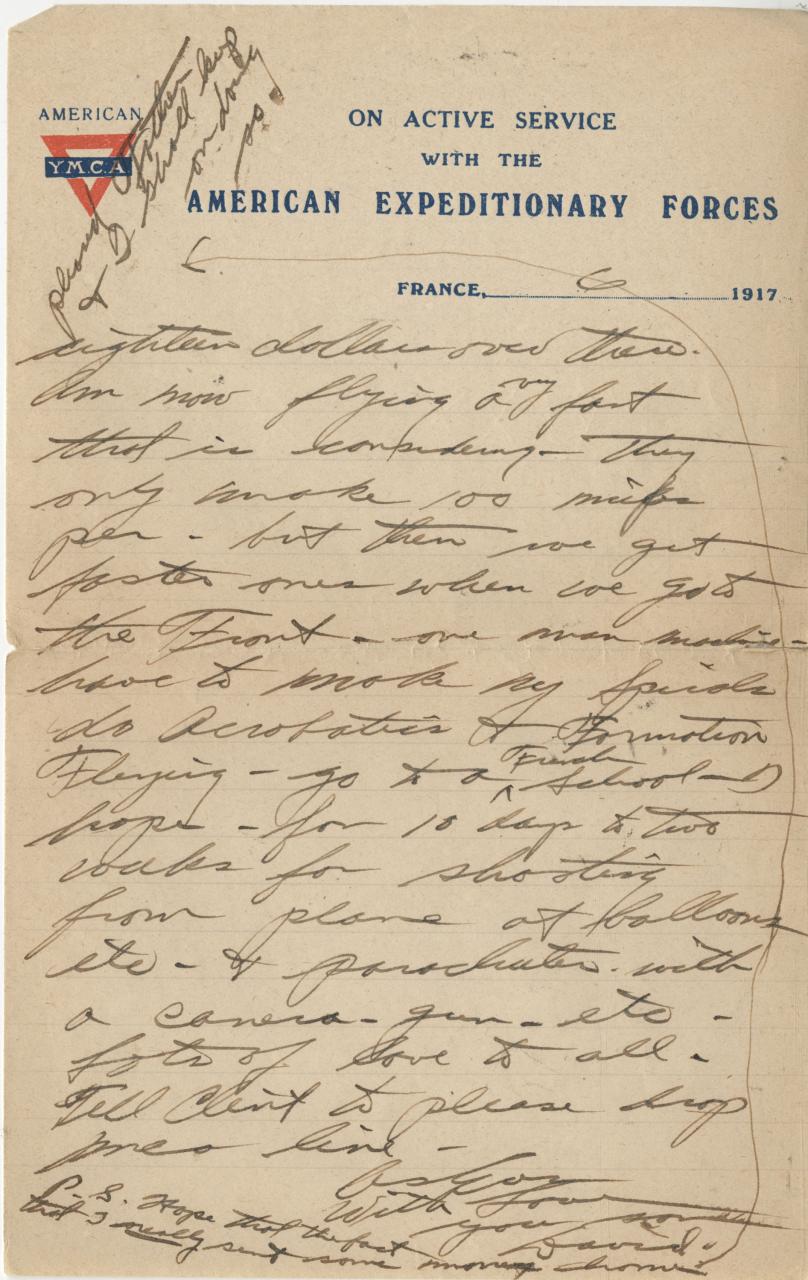 AMERICAN
Y.M.C.A
ON ACTIVE SERVICE
WITH THE
AMERICAN EXPEDITIONARY FORCES
FRANCE, 6 1917
eighteen dollars over there.
Am now flying a very fast
that is considering - they
only make 100 miles
per - but then we get
faster ones when we go to
the Front - one man machine -
have to make my Spirals
do Acrobatics & Formation
Flying - go to a French School - I
hope - for 10 days to two
weeks for shooting
from plane at balloons
etc - & parachutes. with
a camera - gun - etc -
Lots of love to all -
Tell Clint to please drop
me a line -
As Ever
With Love
your son
David.
P. S. Hope that the fact
that I really sent some money home
pleased Father
& I shall keep
on doing
so.